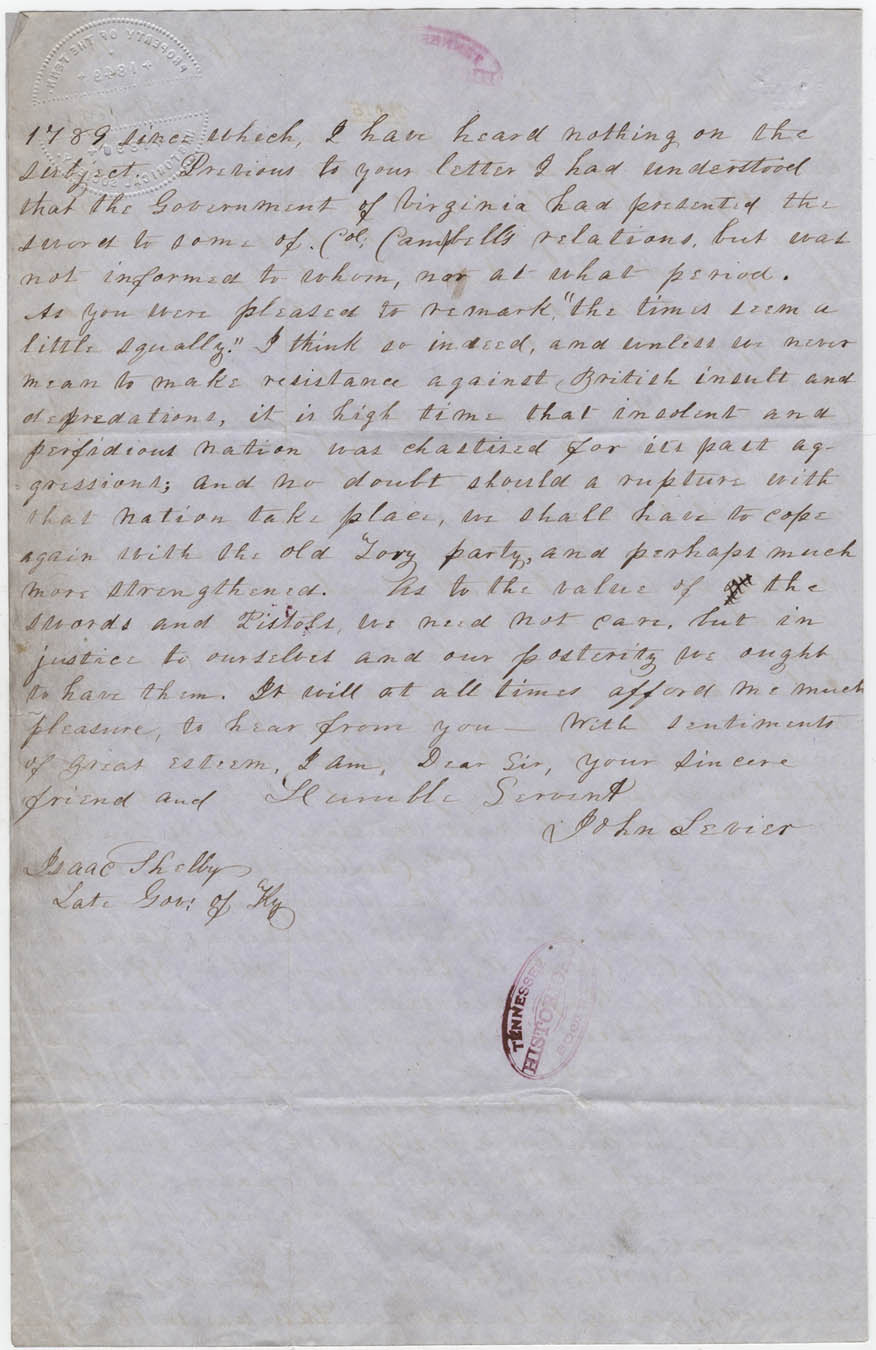 PROPERTY OF THE TENN.
1849
HISTORICAL SOCIETY
1789 since which, I have heard nothing on the
subject. Previous to your letter I had understood
that the Government of Virginia had presented the
sword to some of Col; Campbells relations, but was
not informed to whom, nor at what period.
As you were pleased to remark, "the times seem a
little squally." I think so indeed, and unless we never
mean to make resistance against British insult and
depredations, it is high time that insolent and
perfidious nation was chastised for its past ag-
gressions; and no doubt should a rupture with
that nation take place, we shall have to cope
again with the old Tory party, and perhaps much
more strengthened. As to the value of the
swords and Pistols, we need not care, but in
justice to ourselves and our posterity we ought
to have them. It will at all times afford me much
pleasure, to hear from you — With sentiments
of great esteem, I am, Dear Sir, your sincere
friend and Humble Servent
John Sevier
Isaac Shelby
Late Gov: of Ky
TENNESSEE
HISTORICAL
SOCIETY